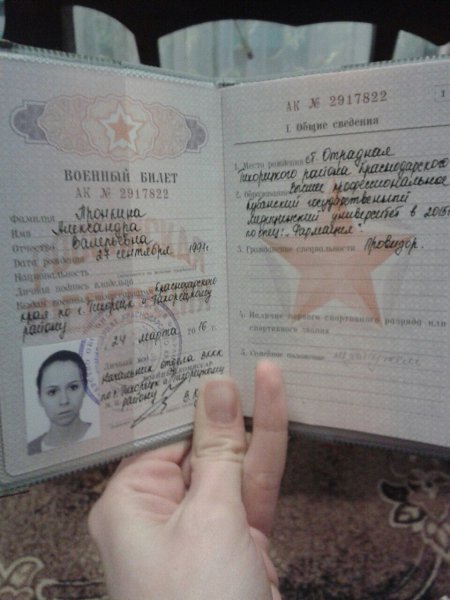 ВОЕННЫЙ БИЛЕТ
АК № 2917822
Фамилия Пронкина
Имя Александра
Отчество Валерьевна
Дата рождения 27 сентября 1991 г.
Национальность
Личная подпись владельца
Выдан военным Краснодарского
края по г. Тихорецк и Тихорецкому
району
24 марта 2016 г.
Личный код
Начальник отдела ВККК
по г. Тихорецк и Тихорецкому
району
АК № 2917822
1
I. Общие сведения
1. Место рождения ст. Отрадная
Тихорецкого района Краснодарского
2. Образование Высшее профессиональное
Кубанский государственный
Медицинский университет в 2015г
по спец: „Фармация"
3. Гражданские специальности Провизор.
4. Наличие первого спортивного разряда или
спортивного звания
5. Семейное положение